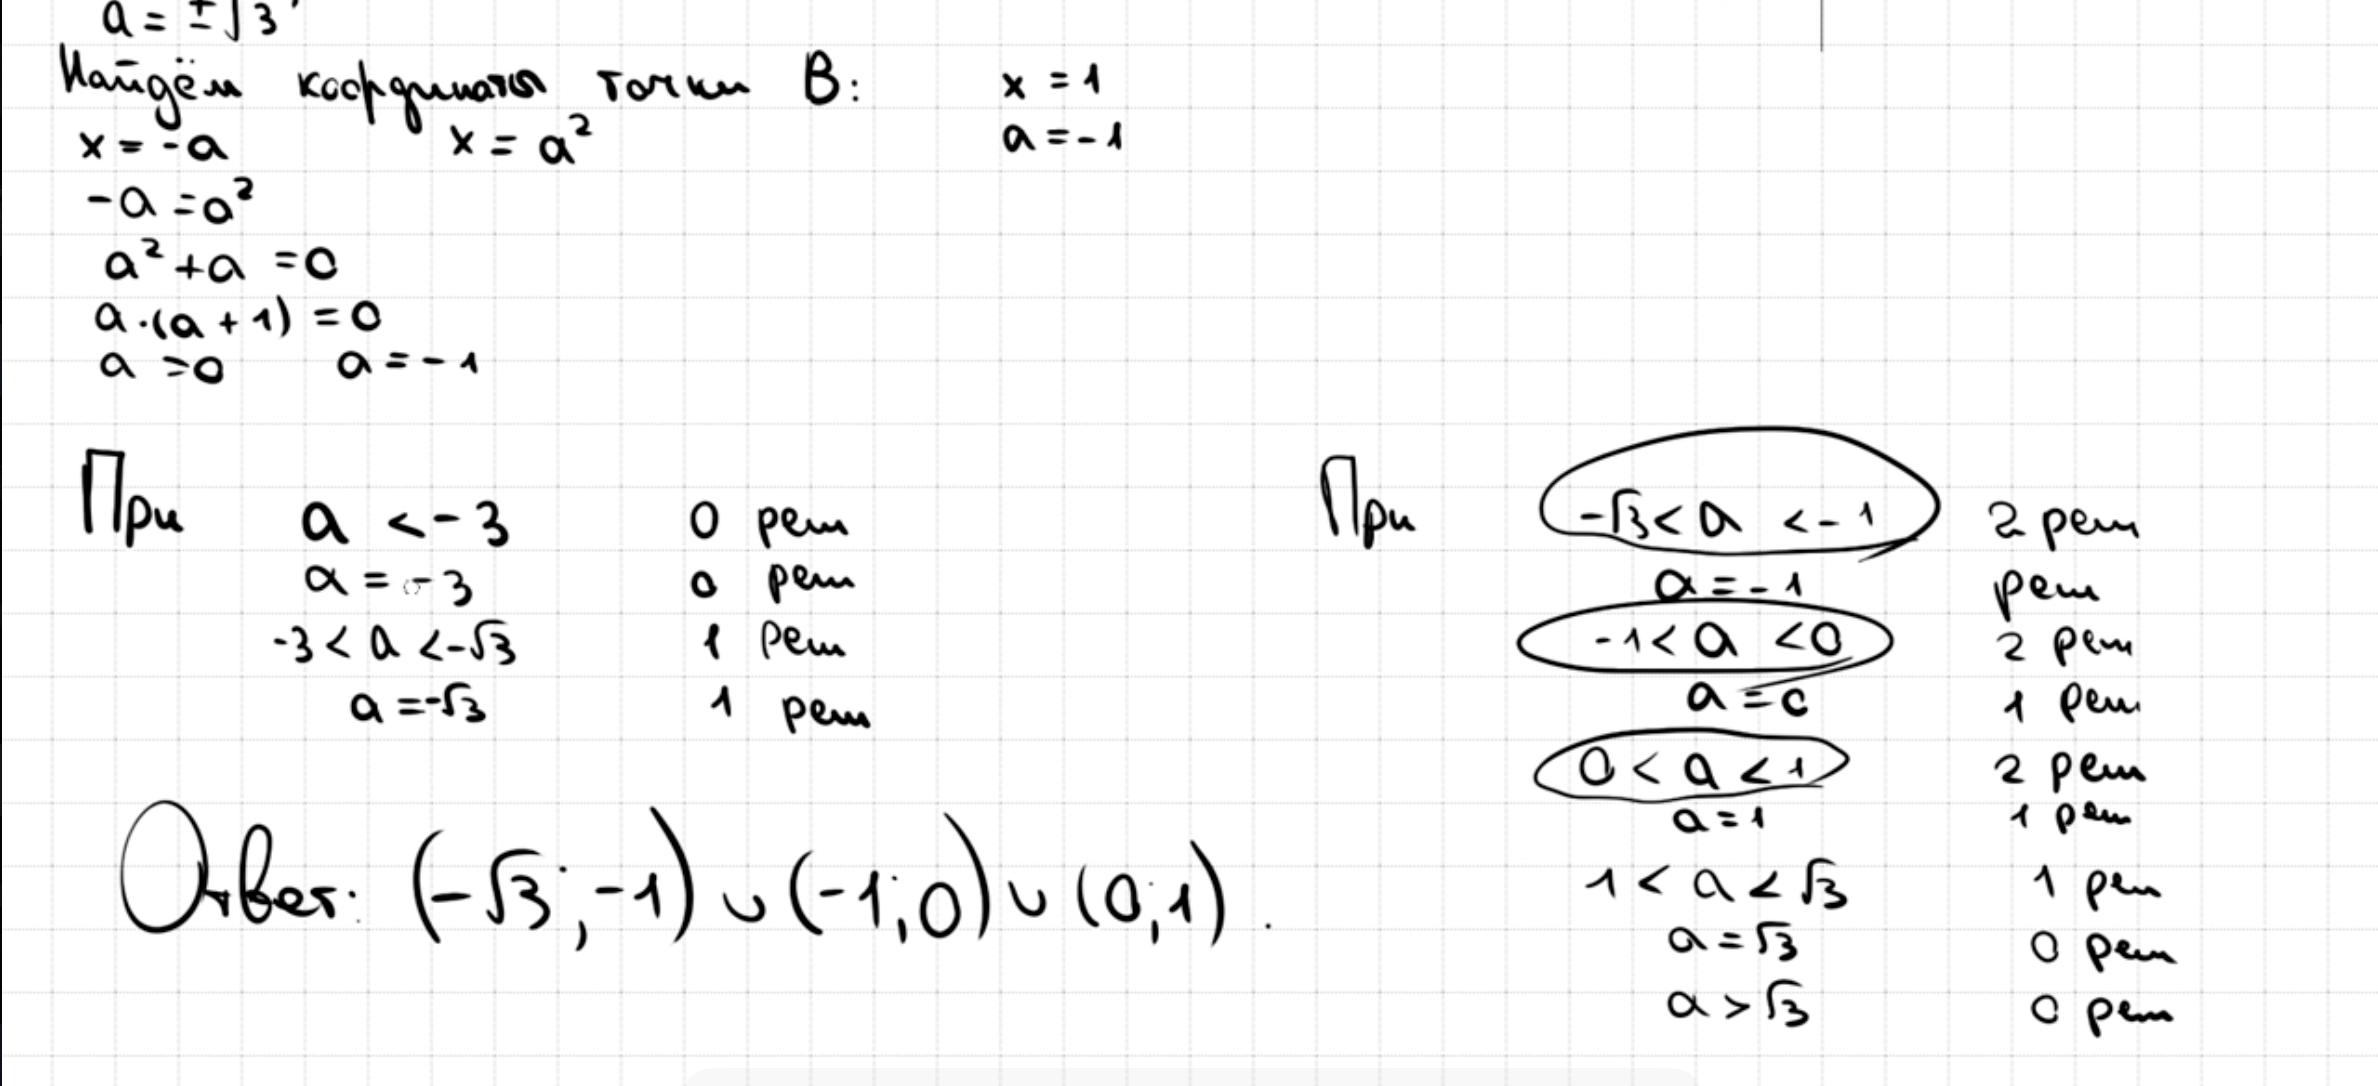 a = ±√3
Найдём координаты точки B:
x = 1
a = -1
x = -a x = a²
-a = a²
a² + a = 0
a·(a + 1) = 0
a = 0 a = -1
При a < -3 0 реш
a = -3 0 реш
-3 < a < -√3 1 реш
a = -√3 1 реш
При -√3 < a < -1 2 реш
a = -1 реш
-1 < a < 0 2 реш
a = 0 1 реш
0 < a < 1 2 реш
a = 1 1 реш
1 < a < √3 1 реш
a = √3 0 реш
a > √3 0 реш
Ответ: (-√3; -1) ∪ (-1; 0) ∪ (0; 1).